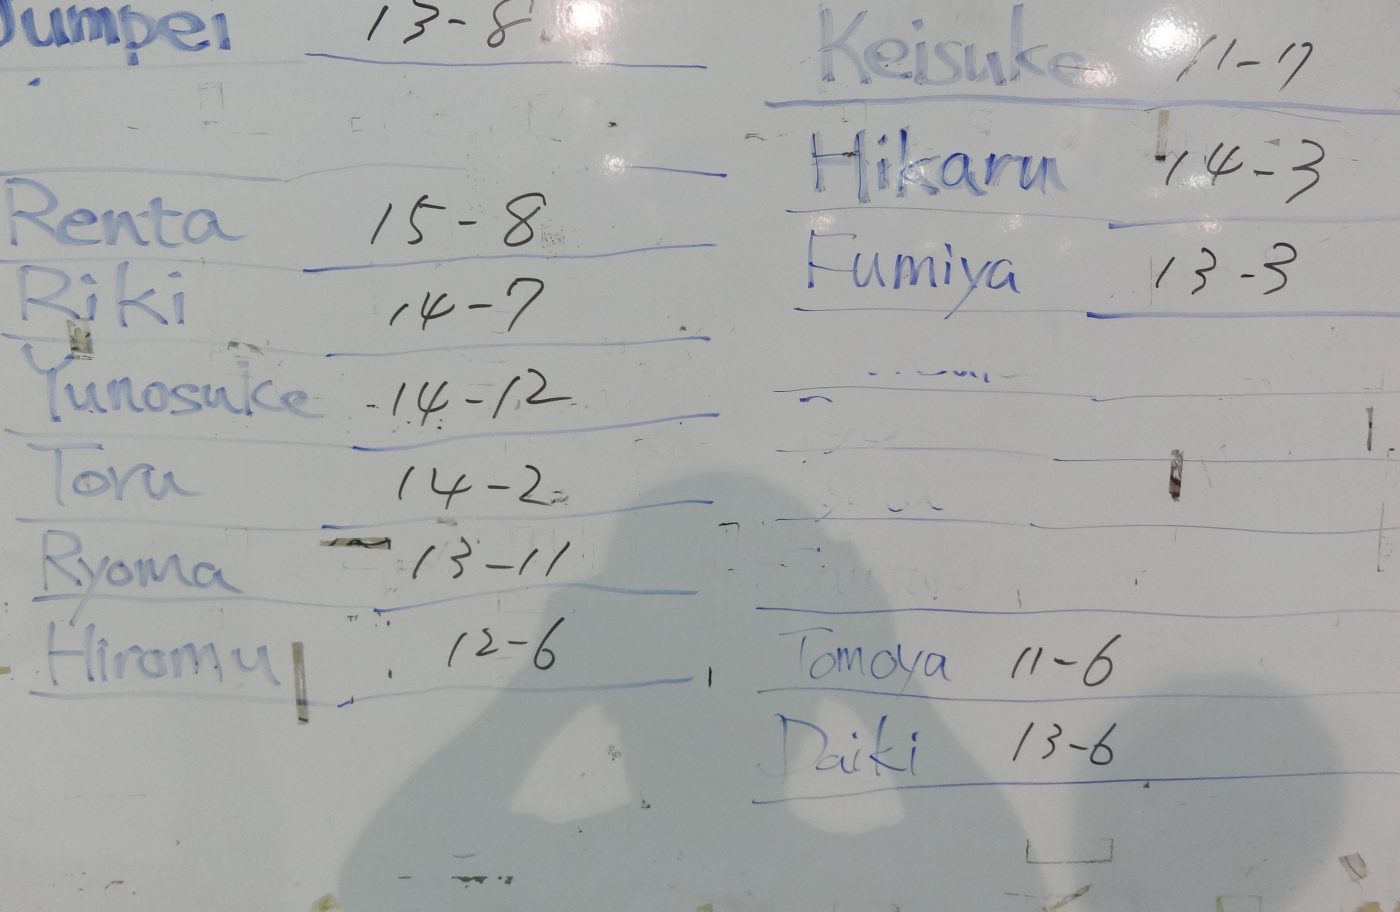 Jumpei 13-8
Renta 15-8
Riki 14-7
Yunosuke 14-12
Toru 14-2
Ryoma 13-11
Hiromu 12-6
Keisuke 11-7
Hikaru 14-3
Fumiya 13-3
Tomoya 11-6
Daiki 13-6